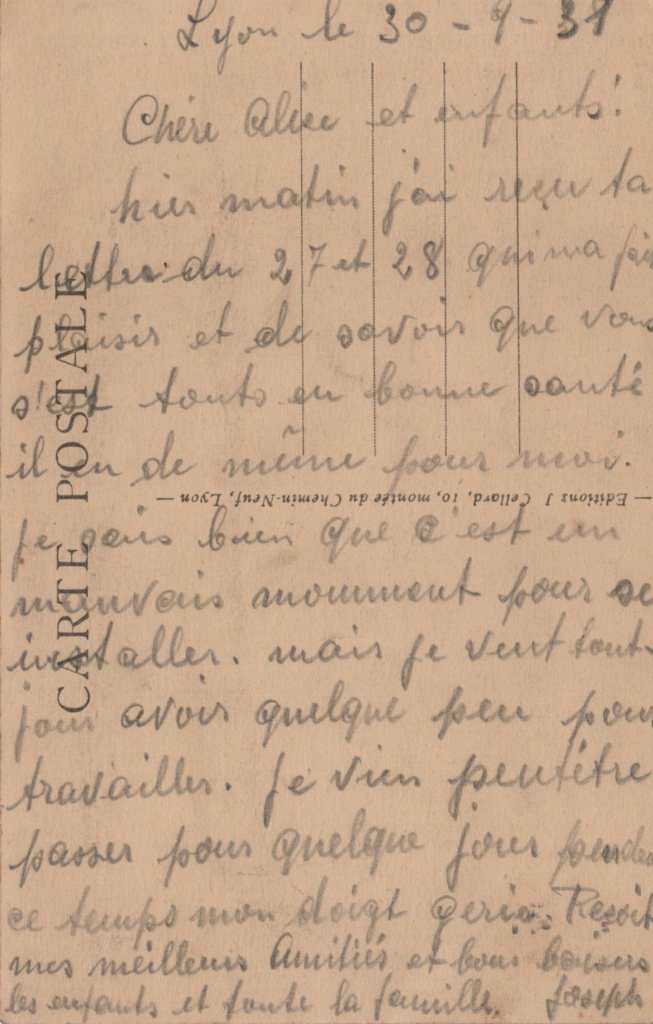 Lyon le 30 - 9 - 38
Chére Alice et enfants!
hier matin j'ai reçu ta
lettre du 27 et 28 qui ma fait
plaisir et de savoir que vous
s'est touts en bonne santé
il en de même pour moi.
— Editions J Cellard, 10, montée du Chemin-Neuf, Lyon —
je sais bien que c'est un
mauvais momment pour se
installer. mais je veut tout-
jour avoir quelque peu pour
travailler. Je vien peutétre
passer pour quelque jour pendes
ce temps mon doigt gerie. Resoit
mes meilleurs Amitiés et bons baisers
les enfants et toute la famille. Joseph
CARTE POSTALE